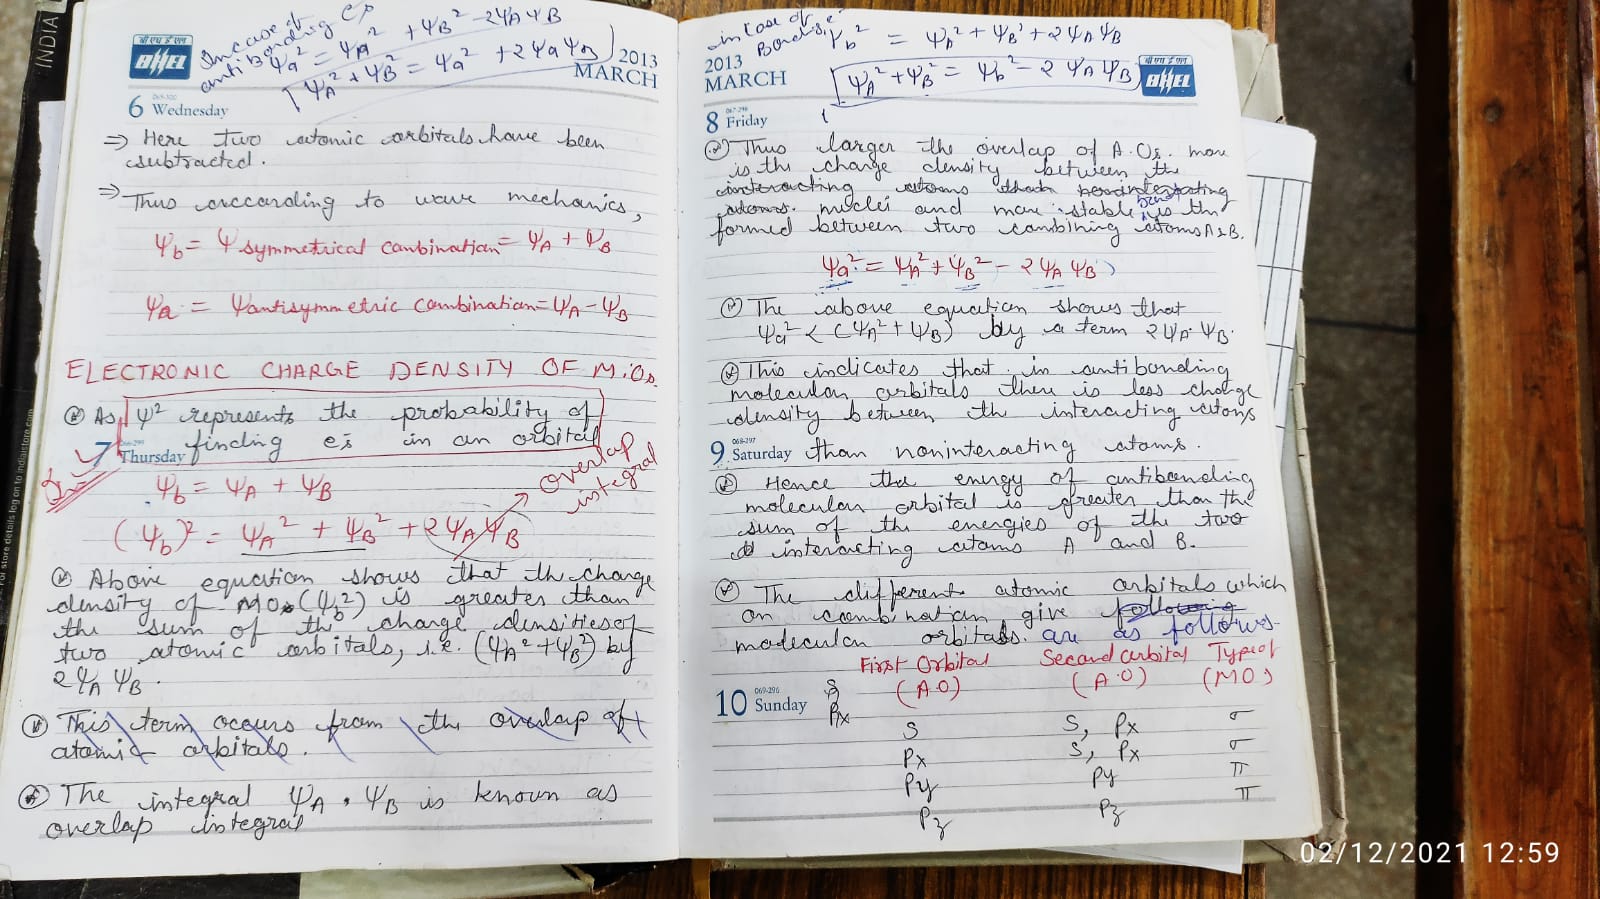 INDIA
For store details log on to indiastore.com
In case of
antibonding
ψa² = ψA² + ψB² - 2ψA ψB
ψA² + ψB² = ψa² + 2ψa ψB
बी एच ई एल
BHEL
2013
MARCH
6 Wednesday
⇒ Here two atomic orbitals have been
subtracted.
⇒ Thus arccarding to wave mechanics,
ψb = ψ symmetrical combination = ψA + ψB
ψa = ψ antisymmetric combination = ψA - ψB
ELECTRONIC CHARGE DENSITY OF M.Os.
As, ψ² represents the probability of
7 Thursday finding es in an orbital
ψb = ψA + ψB
overlap
integral
(ψb)² = ψA² + ψB² + 2ψA ψB
Above equation shows that the charge
density of MOs (ψb²) is greater than
the sum of the charge densities of
two atomic orbitals, i.e. (ψA² + ψB²) by
2ψA ψB.
This term occurs from the overlap of
atomic orbitals.
The integral ψA . ψB is known as
overlap integral
in case of
Bonding
ψb² = ψA² + ψB² + 2ψA ψB
2013
MARCH
ψA² + ψB² = ψb² - 2 ψA ψB
बी एच ई एल
BHEL
067-298
8 Friday
Thus larger the overlap of A.Os. more
is the charge density between the
interacting atoms than
atoms. nuclei and more stable is the
formed between two combining atoms A & B.
ψa² = ψA² + ψB² - 2ψA ψB
The above equation shows that
ψa² < (ψA² + ψB) by a term 2ψA.ψB.
This indicates that in antibonding
molecular orbitals there is less charge
density between th interacting atoms
068-297
9 Saturday than noninteracting atoms.
Hence the energy of antibonding
molecular orbital is greater than the
sum of the energies of the two
interacting atoms A and B.
The different atomic orbitals which
on combination give following
molecular orbitals. are as follows-
First Orbital Second orbital Type of
(AO) (A.O) (MO)
069-296
10 Sunday
S S, Px σ
Px S, Px σ
Py Py π
Pz Pz π
02/12/2021 12:59